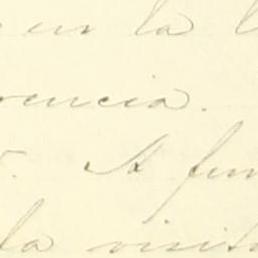 en la
encia.
A fun
la visit